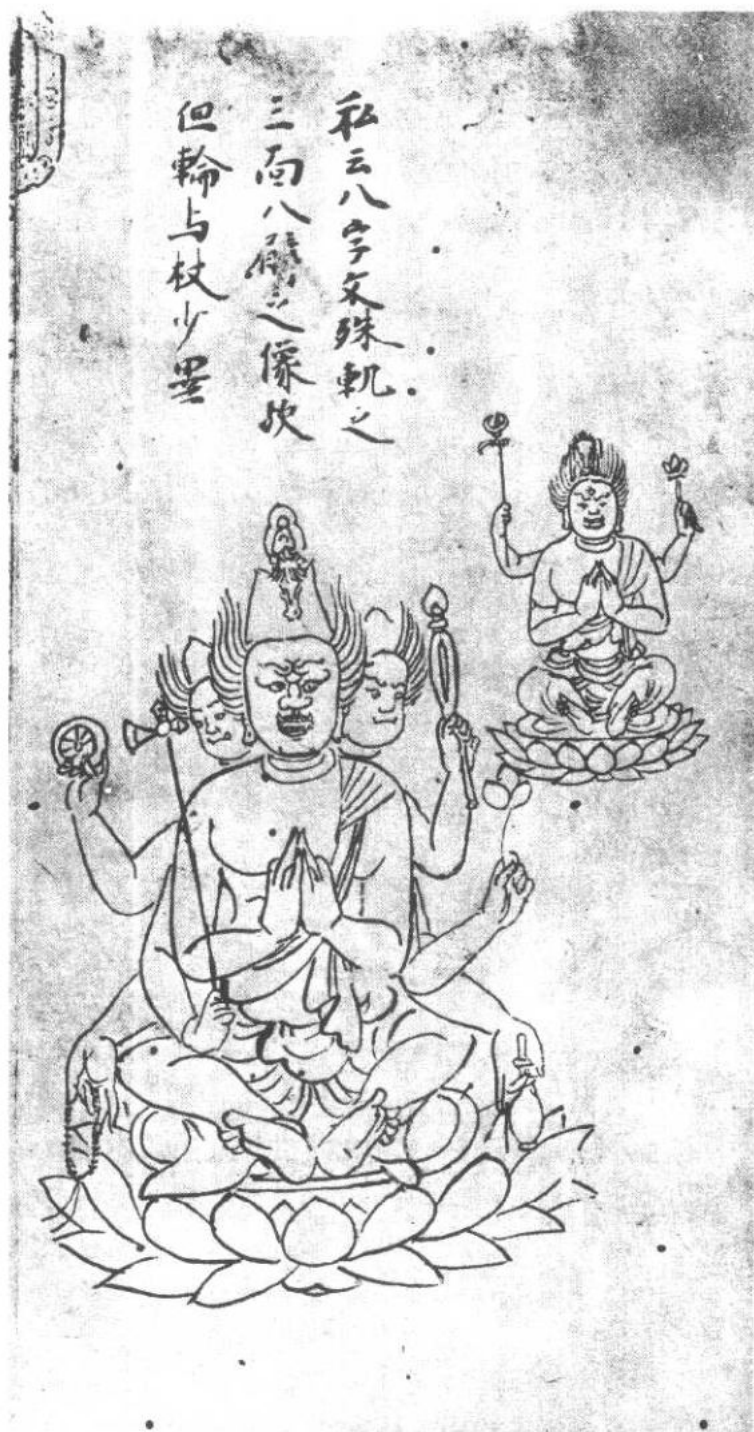 私云八字文殊軌之
三面八臂之像欤
但輪与杖少異